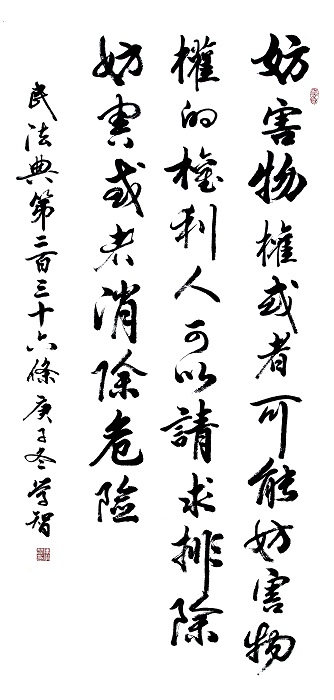 妨害物權或者可能妨害物
權的權利人可以請求排除
妨害或者消除危險
民法典第二百三十六條 庚子冬 学智